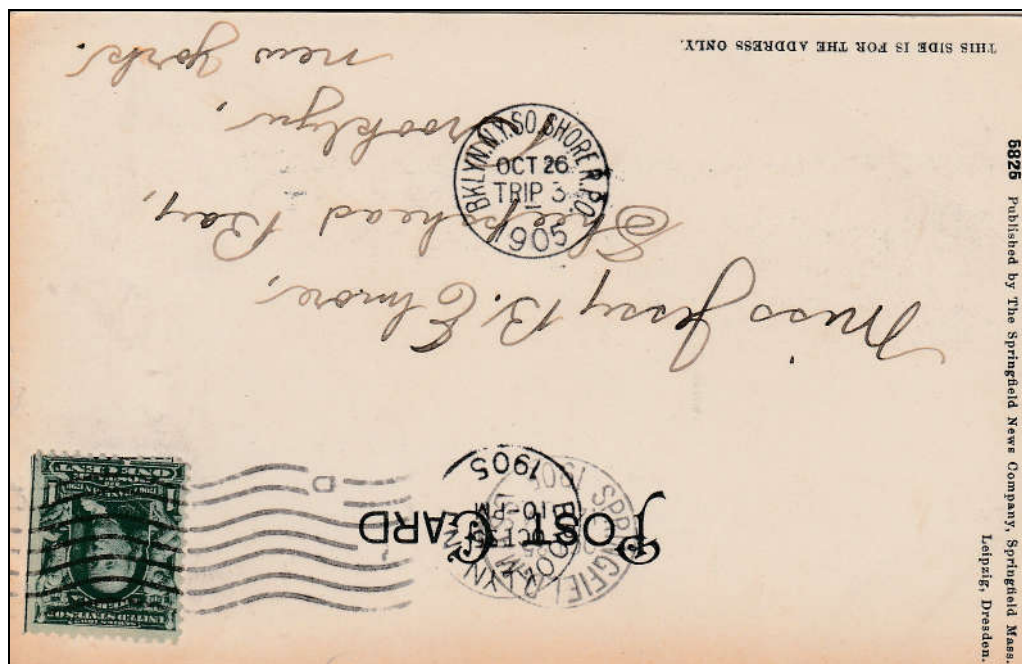 POST CARD
THIS SIDE IS FOR THE ADDRESS ONLY.
UNITED STATES OF
ONE CENT
D
SPRINGFIEL
1905
OCT 25
10-PM
1905
Miss Jessy B. Elmore,
Sheepshead Bay,
Brooklyn,
new york.
BKLYN.N.Y.SO.SHORE R.P.O.
OCT 26
TRIP 3
1905
5825 Published by The Springfield News Company, Springfield Mass.
Leipzig, Dresden.